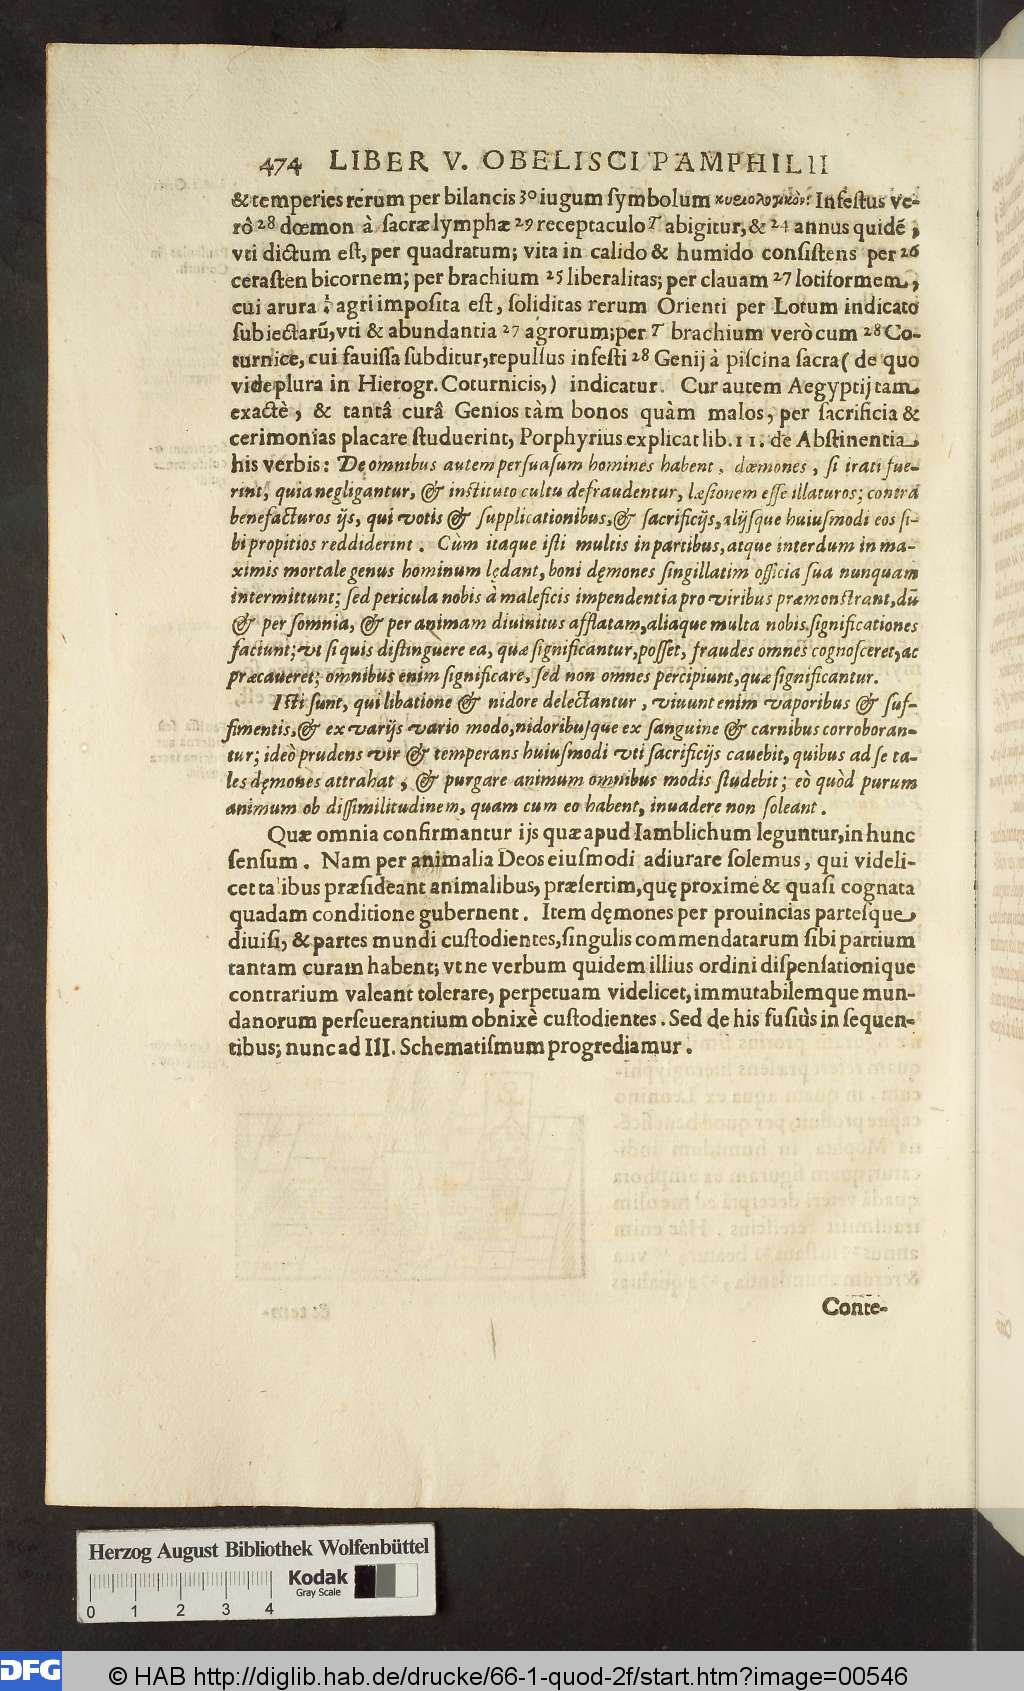 474 LIBER V. OBELISCI PAMPHILII
& temperies rerum per bilancis 30 iugum ſymbolum κυριολογικόν. Infeſtus ve-
rò 28 dœmon à ſacræ lymphæ 29 receptaculo T abigitur, & 24 annus quidē,
vti dictum eſt, per quadratum; vita in calido & humido conſiſtens per 26
ceraſten bicornem; per brachium 25 liberalitas; per clauam 27 lotiformem,
cui arura agri impoſita eſt, ſoliditas rerum Orienti per Lotum indicato
ſubiectarū, vti & abundantia 27 agrorum; per T brachium verò cum 28 Co-
turnice, cui fauiſſa ſubditur, repulſus infeſti 28 Genij à piſcina ſacra (de quo
vide plura in Hierogr. Coturnicis,) indicatur. Cur autem Aegyptij tam
exactè, & tantâ curâ Genios tàm bonos quàm malos, per ſacrificia &
cerimonias placare ſtuduerint, Porphyrius explicat lib. 11. de Abſtinentia
his verbis: De omnibus autem perſuaſum homines habent, dæmones, ſi irati fue-
rint, quia negligantur, & inſtituto cultu defraudentur, læſionem eſſe illaturos; contrà
benefacturos ijs, qui votis & ſupplicationibus, & ſacrificijs, alijſque huiuſmodi eos ſi-
bi propitios reddiderint. Cùm itaque iſti multis in partibus, atque interdum in ma-
ximis mortale genus hominum lędant, boni dęmones ſingillatim officia ſua nunquam
intermittunt; ſed pericula nobis à maleficis impendentia pro viribus præmonſtrant, dū
& per ſomnia, & per animam diuinitus afflatam, aliaque multa nobis ſignificationes
faciunt; vt ſi quis diſtinguere ea, quæ ſignificantur, poſſet, fraudes omnes cognoſceret, ac
præcaueret; omnibus enim ſignificare, ſed non omnes percipiunt, quæ ſignificantur.
Iſti ſunt, qui libatione & nidore delectantur, viuunt enim vaporibus & ſuf-
fimentis, & ex varijs vario modo, nidoribuſque ex ſanguine & carnibus corroboran-
tur; ideò prudens vir & temperans huiuſmodi vti ſacrificijs cauebit, quibus ad ſe ta-
les dęmones attrahat, & purgare animum omnibus modis ſtudebit; eò quòd purum
animum ob diſſimilitudinem, quam cum eo habent, inuadere non ſoleant.
Quæ omnia confirmantur ijs quæ apud Iamblichum leguntur, in hunc
ſenſum. Nam per animalia Deos eiuſmodi adiurare ſolemus, qui videli-
cet talibus præſideant animalibus, præſertim, quę proximè & quaſi cognata
quadam conditione gubernent. Item dęmones per prouincias parteſque
diuiſi, & partes mundi cuſtodientes, ſingulis commendatarum ſibi partium
tantam curam habent; vt ne verbum quidem illius ordini diſpenſationique
contrarium valeant tolerare, perpetuam videlicet, immutabilemque mun-
danorum perſeuerantium obnixè cuſtodientes. Sed de his fuſiùs in ſequen-
tibus; nunc ad III. Schematiſmum progrediamur.
Conte-
Herzog August Bibliothek Wolfenbüttel
Kodak
Gray Scale
0 1 2 3 4
DFG © HAB http://diglib.hab.de/drucke/66-1-quod-2f/start.htm?image=00546